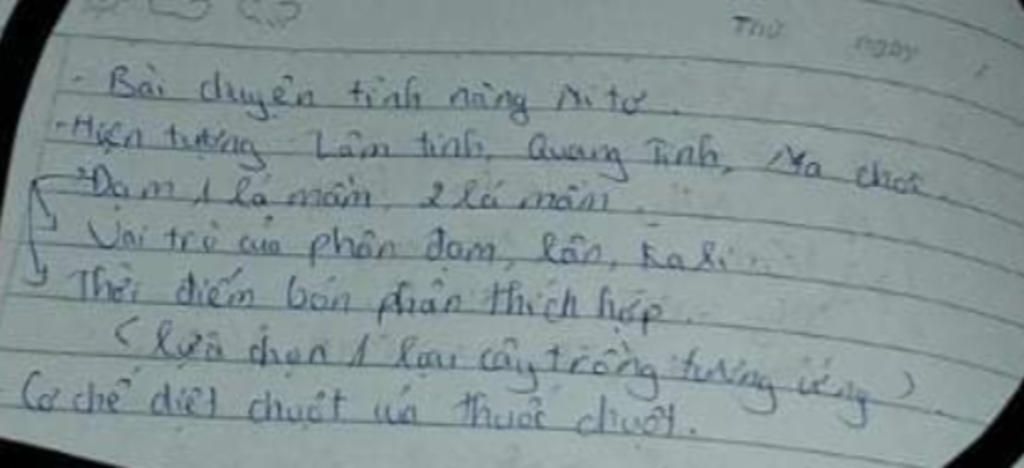 Thứ ngày
- Bài chuyên tính năng Ni tơ.
- Hiện tượng Lâm tinh, Quang Tinh, Ma chơi.
Đạm 1 lá mầm, 2 lá mầm.
Vai trò của phân đạm, lân, Kali..
Thời điểm bón phân thích hợp.
(lựa chọn 1 loại cây trồng tương ứng).
Cơ chế diệt chuột của thuốc chuột.